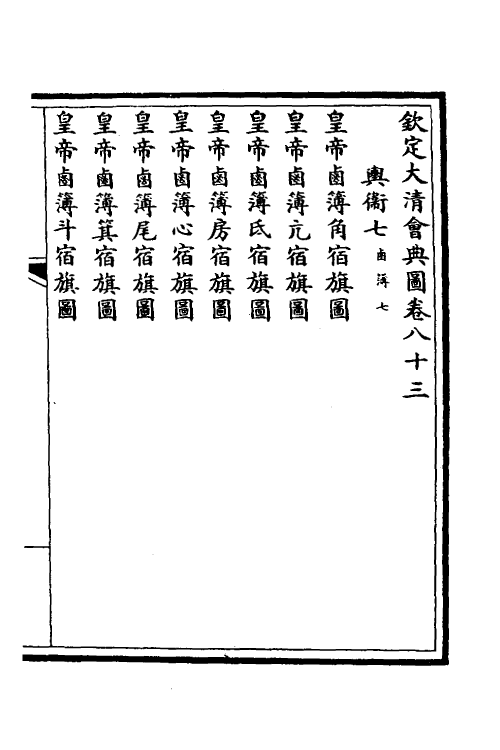 欽定大清會典圖卷八十三
輿衞七 鹵簿七
皇帝鹵簿角宿旗圖
皇帝鹵簿亢宿旗圖
皇帝鹵簿氐宿旗圖
皇帝鹵簿房宿旗圖
皇帝鹵簿心宿旗圖
皇帝鹵簿尾宿旗圖
皇帝鹵簿箕宿旗圖
皇帝鹵簿斗宿旗圖